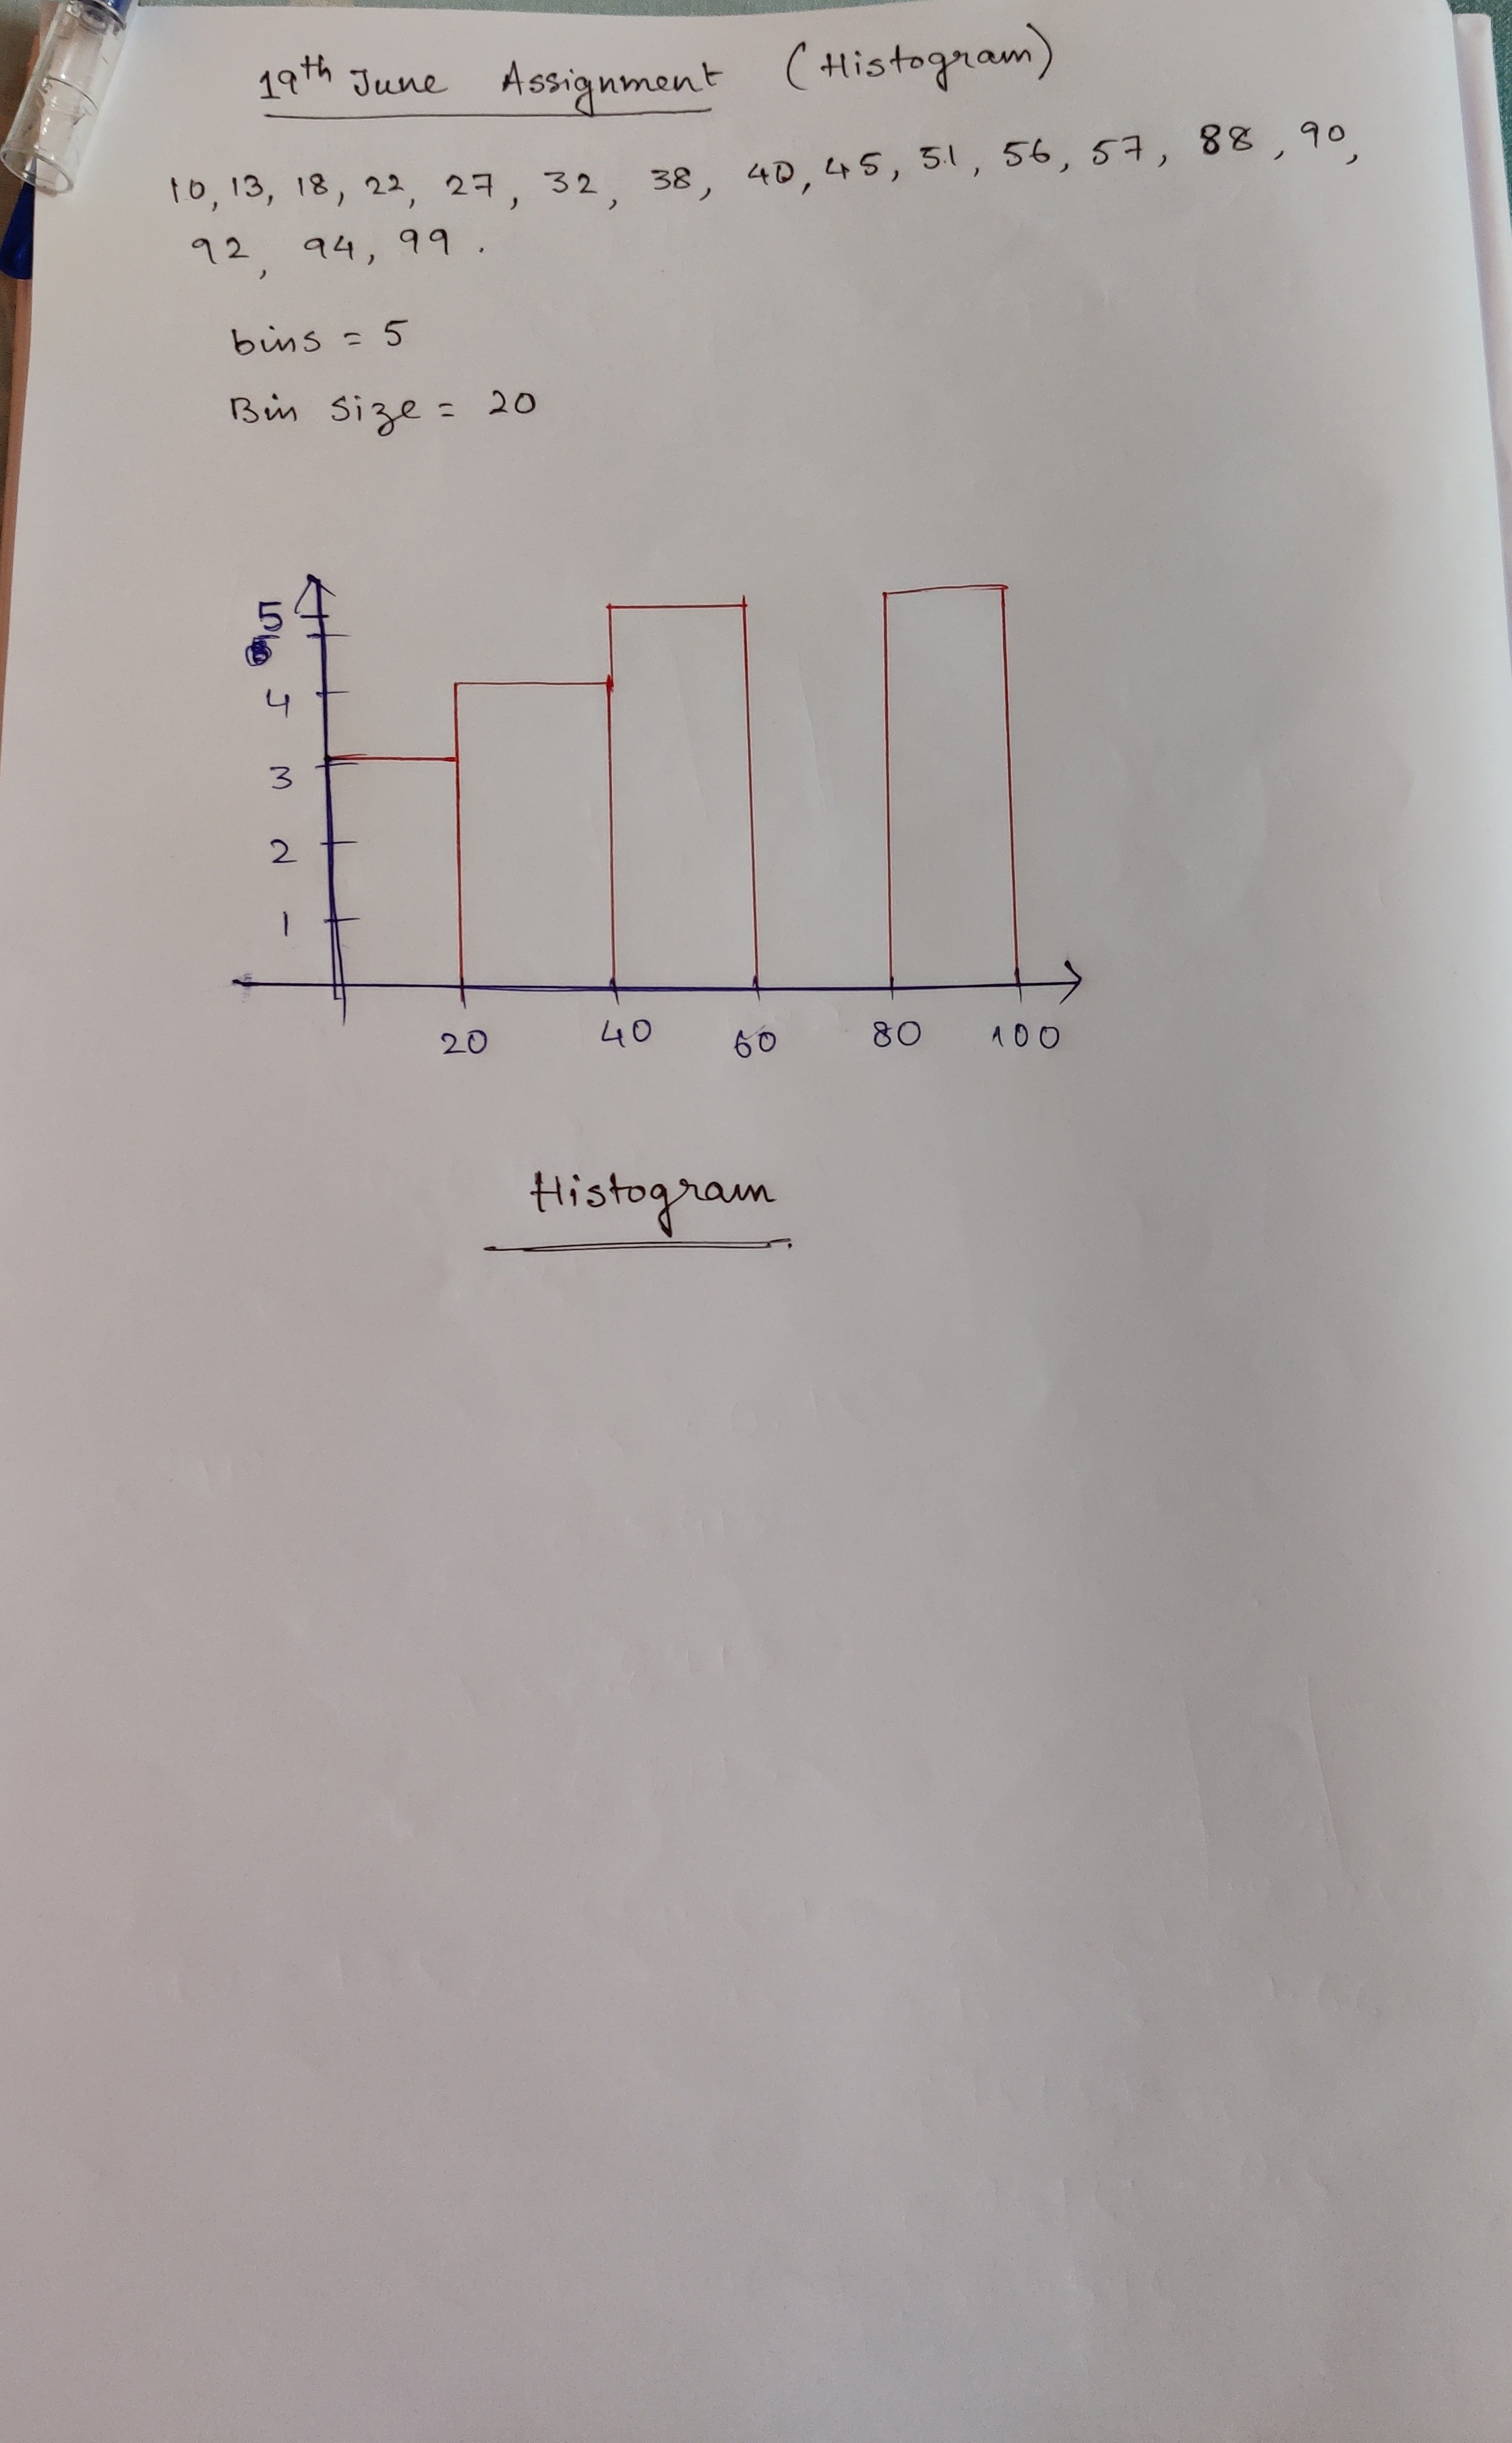 19th June Assignment (Histogram)
10, 13, 18, 22, 27, 32, 38, 40, 45, 51, 56, 57, 88, 90,
92, 94, 99.
bins = 5
Bin size = 20
5
4
3
2
1
20 40 60 80 100
Histogram